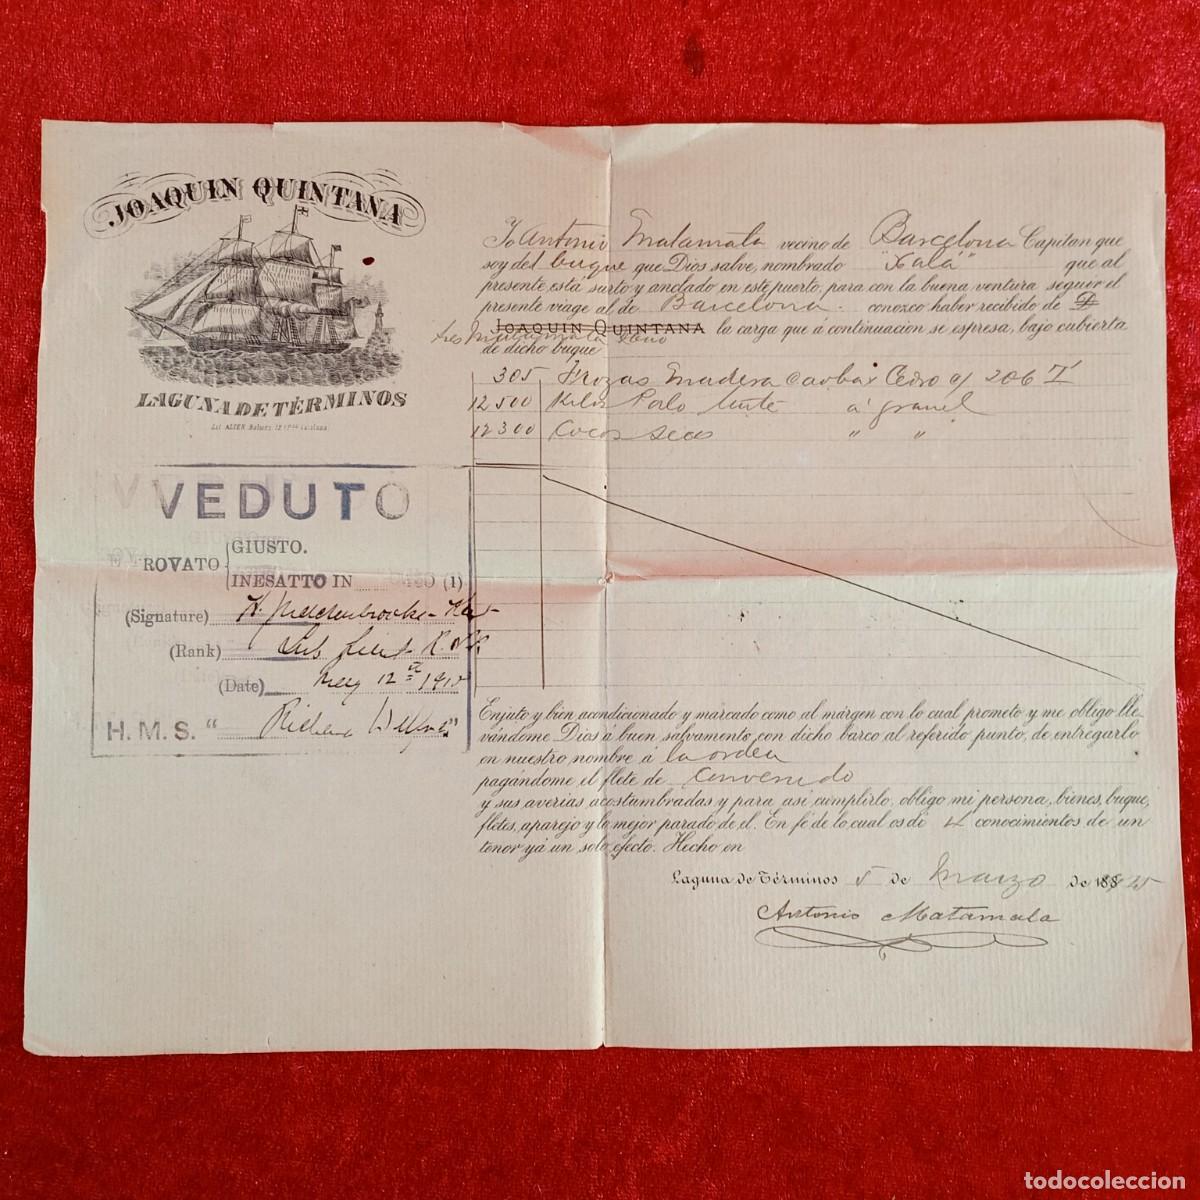 JOAQUIN QUINTANA
LAGUNA DE TÉRMINOS
Yo Antonio Matamala vecino de Barcelona Capitan que
soy del buque que Dios salve, nombrado "Xalá" que al
presente está surto y anclado en este puerto, para con la buena ventura seguir el
presente viage al de Barcelona. conozco haber recibido de D
JOAQUIN QUINTANA la carga que á continuacion se espresa, bajo cubierta
de dicho buque
305 Trozas Madera caoba y Cedro c/ 206 T
12500 Kilos Palo tinte á granel
12300 Cocos secos " "
VEDUTO
ROVATO GIUSTO.
INESATTO IN (1)
(Signature)
(Rank) Sub Lieut R.N.R
(Date) May 12th 1915
H.M.S. "
Enjuto y bien acondicionado y marcado como al márgen con lo cual prometo y me obligo lle-
vándome Dios á buen salvamento, con dicho barco al referido punto, de entregarlo
en nuestro nombre á la orden
pagándome el flete de Convenido
y sus averias acostumbradas y para asi cumplirlo, obligo mi persona, bienes, buque,
fletes, aparejo y lo mejor parado de el. En fé de lo cual os di 4 conocimientos de un
tenor y á un solo efecto. Hecho en
Laguna de Términos 5 de Marzo de 1915
Antonio Matamala
todocoleccion